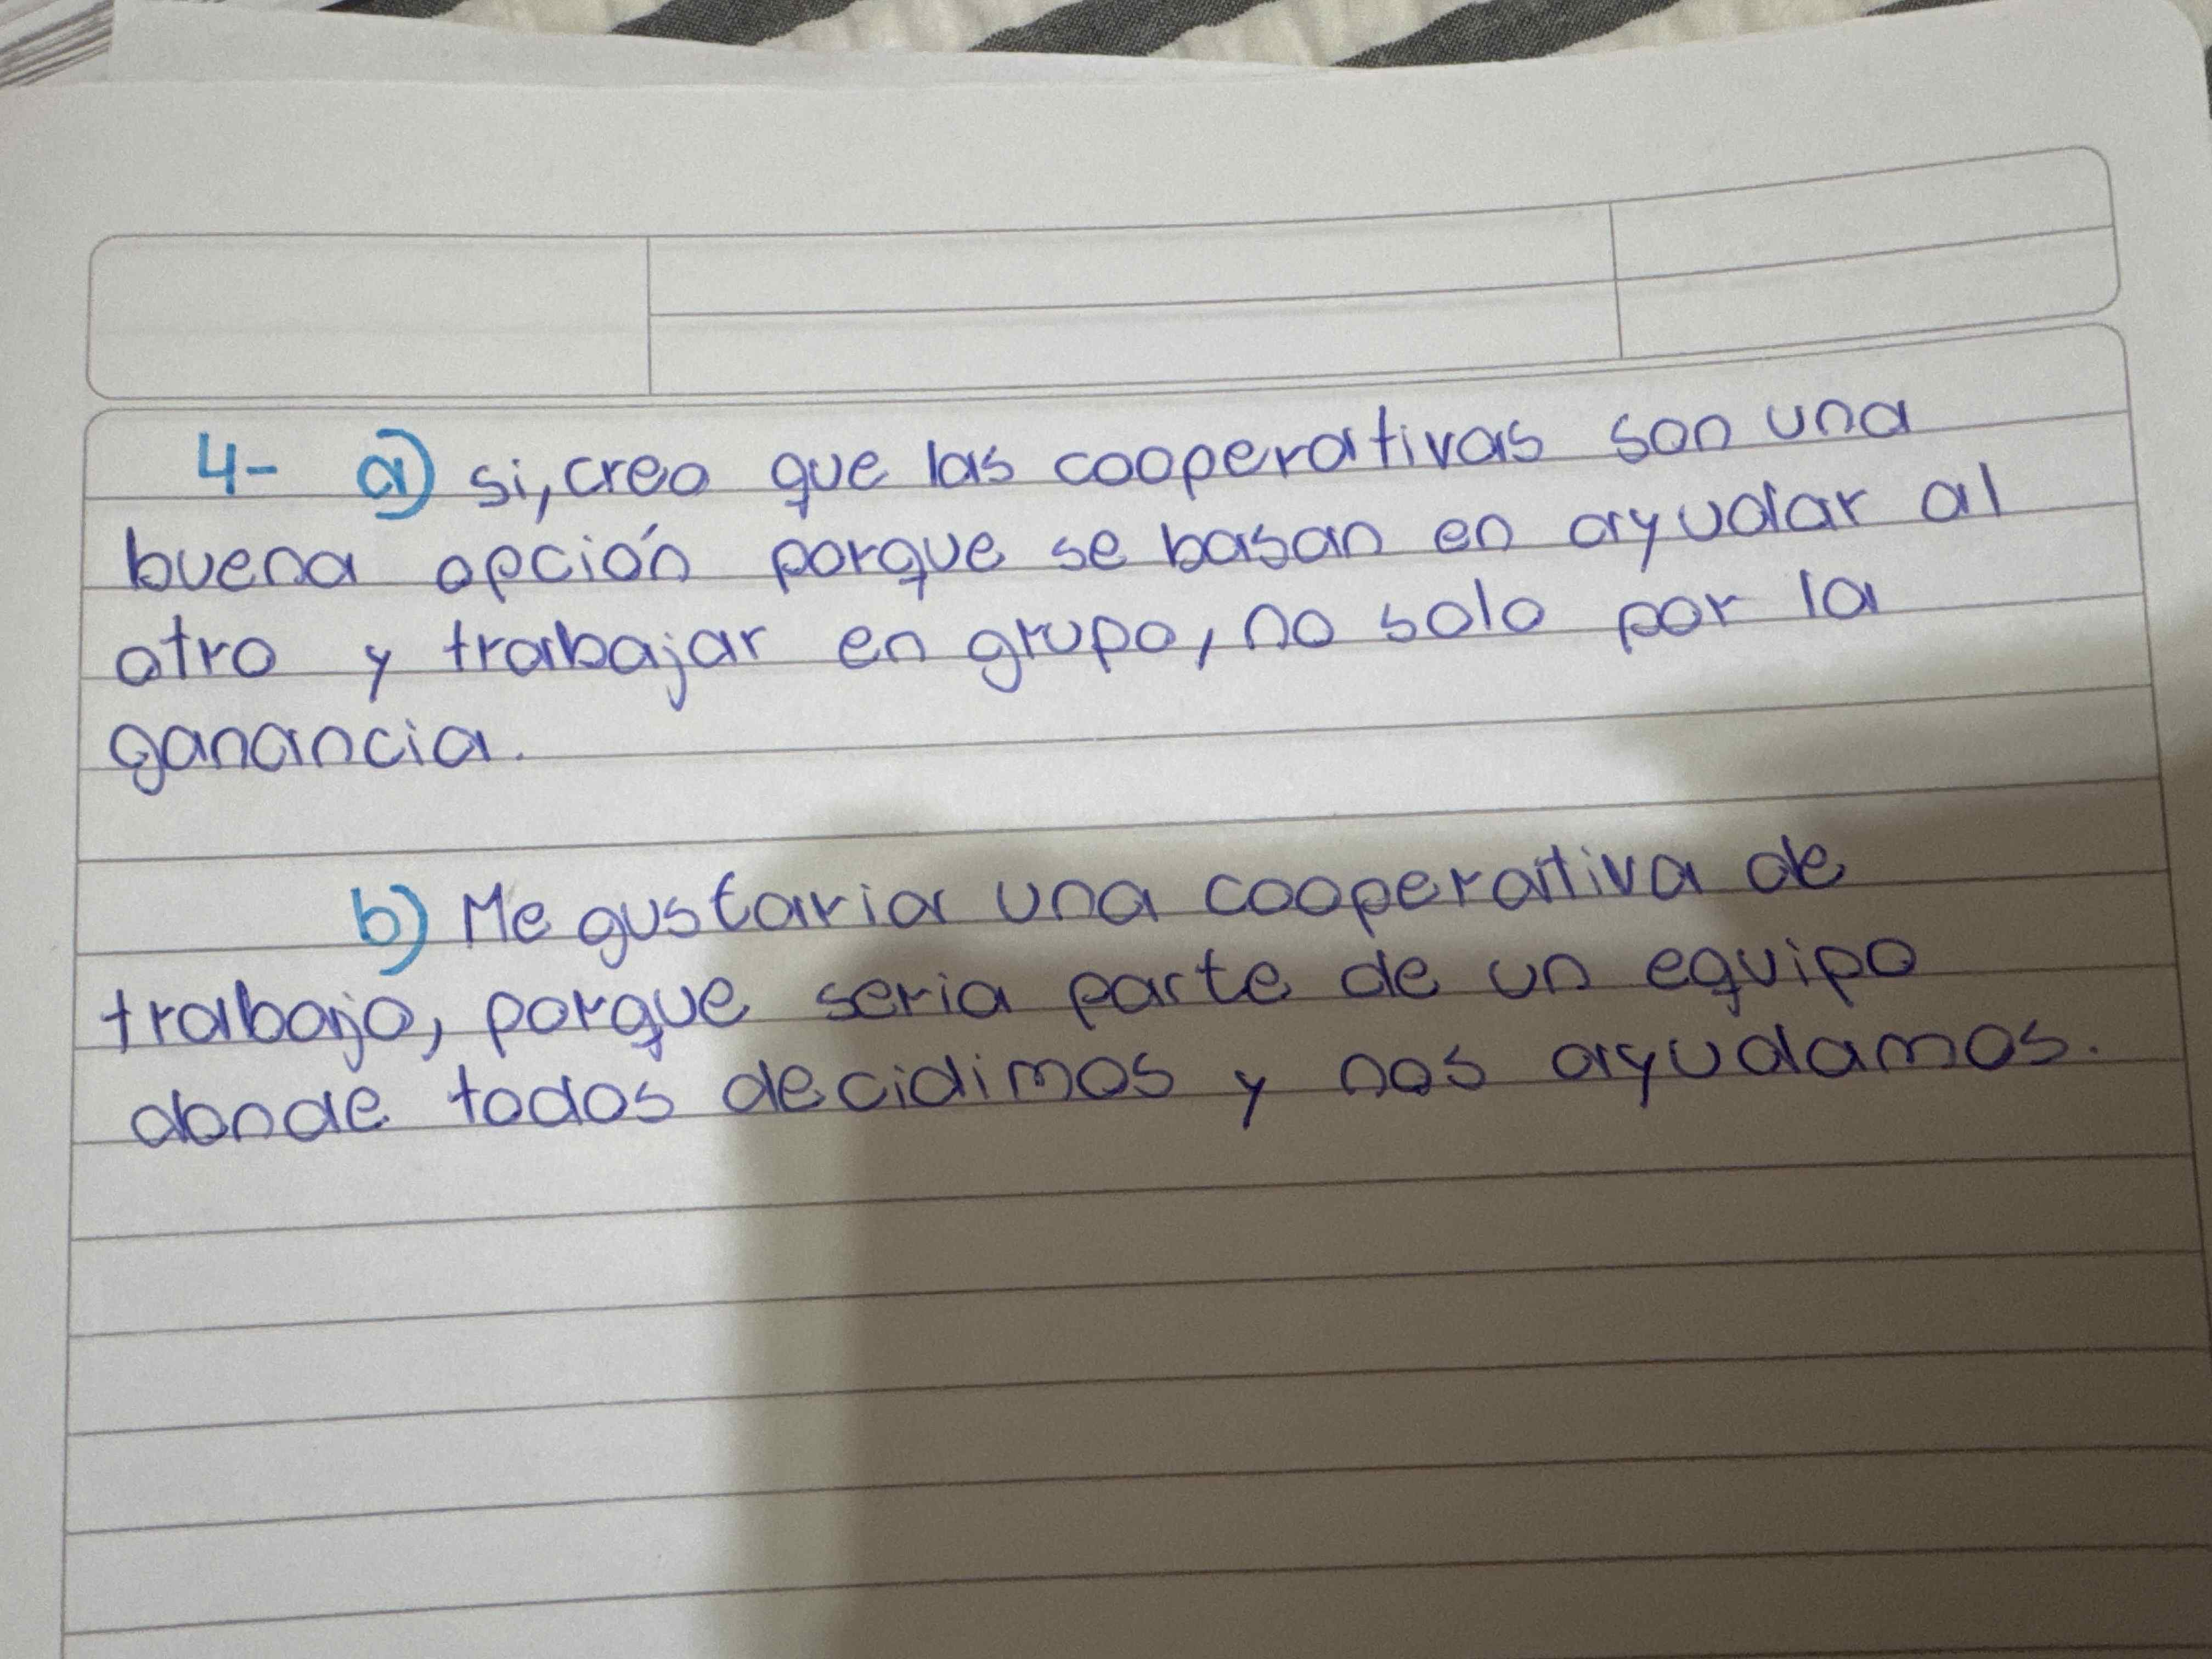 4- a) si, creo que las cooperativas son una
buena opción porque se basan en ayudar al
otro y trabajar en grupo, no solo por la
ganancia.
b) Me gustaria una cooperativa de
trabajo, porque seria parte de un equipo
donde todos decidimos y nos ayudamos.